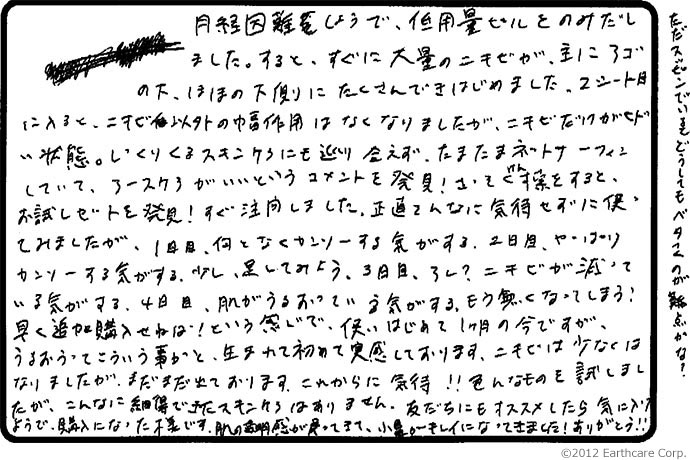 月経困難症しょうで、低用量ピルをのみだし
ました。すると、すぐに大量のニキビが、主にアゴ
の下、ほほの下側にたくさんできはじめました。2シート目
に入ると、ニキビ以外の副作用はなくなりましたが、ニキビだけがヒド
い状態。しっくりくるスキンケアにも巡り合えず、たまたまネットサーフィン
していて、アースケアがいいというコメントを発見!さっそく検索をすると、
お試しセットを発見!すぐ注文しました。正直そんなに気待せずに使っ
てみましたが、1日目、何となくカンソーする気がする。2日目、やっぱり
カンソーする気がする。少し、足してみよう。3日目、アレ?ニキビが減って
いる気がする。4日目、肌がうるおっている気がする。もう無くなってしまう!
早く追加購入せねば!という感じで、使いはじめて1ヶ月の今ですが、
うるおうってこういう事かと、生まれて初めて実感しております。ニキビは少なくは
なりましたが、まだまだ出ております。これからに期待!!色んなものを試しまし
たが、こんなに納得できたスキンケアはありません。友だちにもオススメしたら気に入った
ようで、購入になった様です。肌の透明感が戻ってきて、小鼻がキレイになってきました!ありがとう!!
ただスゼンでいるとどうしてもベタつくのが難点かな?
©2012 Earthcare Corp.